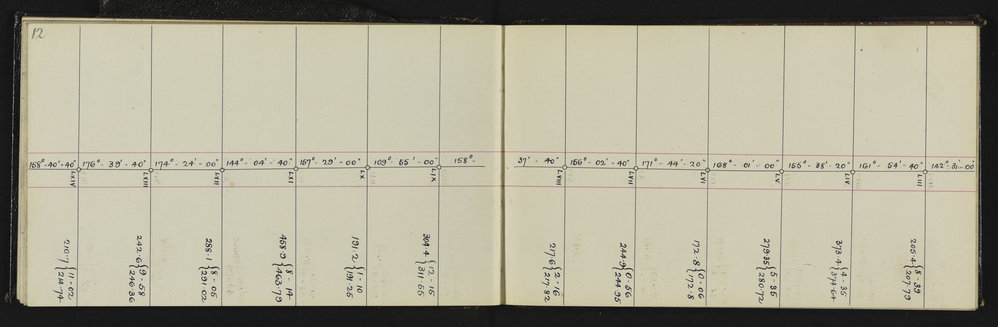 12
158°-40'-40" 176°-39'-40" 174°-24'-00" 144°-04'-40" 157°-29'-00" 109°-55'-00" 158°
37'-40" 156°-02'-40" 171°-44'-20" 168°-01'-00" 155°-38'-20" 161°-54'-40" 142°-31'-00"
LXIV LXIII LXII LXI LX LIX
LVIII LVII LVI LV LIV LIII
210.7 { 11-02
214.74
242.6 { 9-58
246.36
288.1 { 8-05
291.02
458.9 { 8-14
463.79
191.2 { 1-10
191.25
304.4 { 12-15
311.55
217.6 { 2-16
217.82
244.9 { 0-56
244.95
172.8 { 0-06
172.8
279.35 { 5-35
280.72
373.4 { 4-35
374.64
205.4 { 8-39
207.79